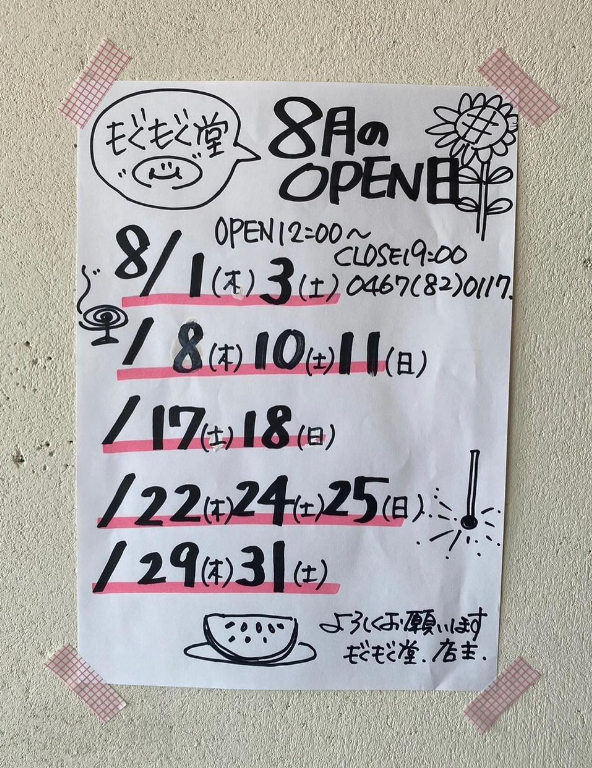 もぐもぐ堂
8月の
OPEN日
OPEN12:00〜
CLOSE19:00
8/1(木)3(土) 0467(82)0117.
/8(木)10(土)11(日)
/17(土)18(日)
/22(木)24(土)25(日)
/29(木)31(土)
よろしくお願いします
もぐもぐ堂.店主.